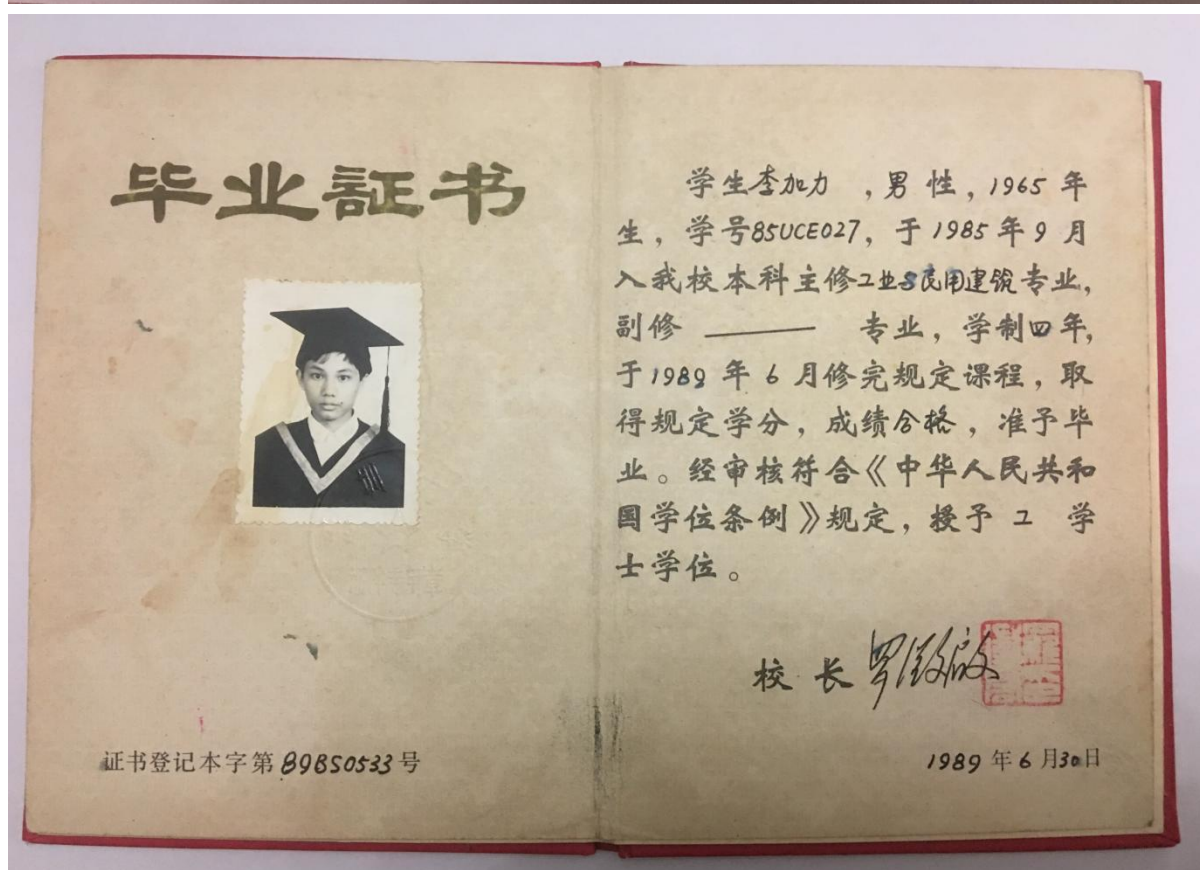 毕业証书
证书登记本字第89BS0533号
学生李加力,男性,1965年
生,学号85UCE027,于1985年9月
入我校本科主修工业与民用建筑专业,
副修 ——— 专业,学制四年,
于1989年6月修完规定课程,取
得规定学分,成绩合格,准予毕
业。经审核符合《中华人民共和
国学位条例》规定,授予 工 学
士学位。
校长 罗徵启
1989年6月30日